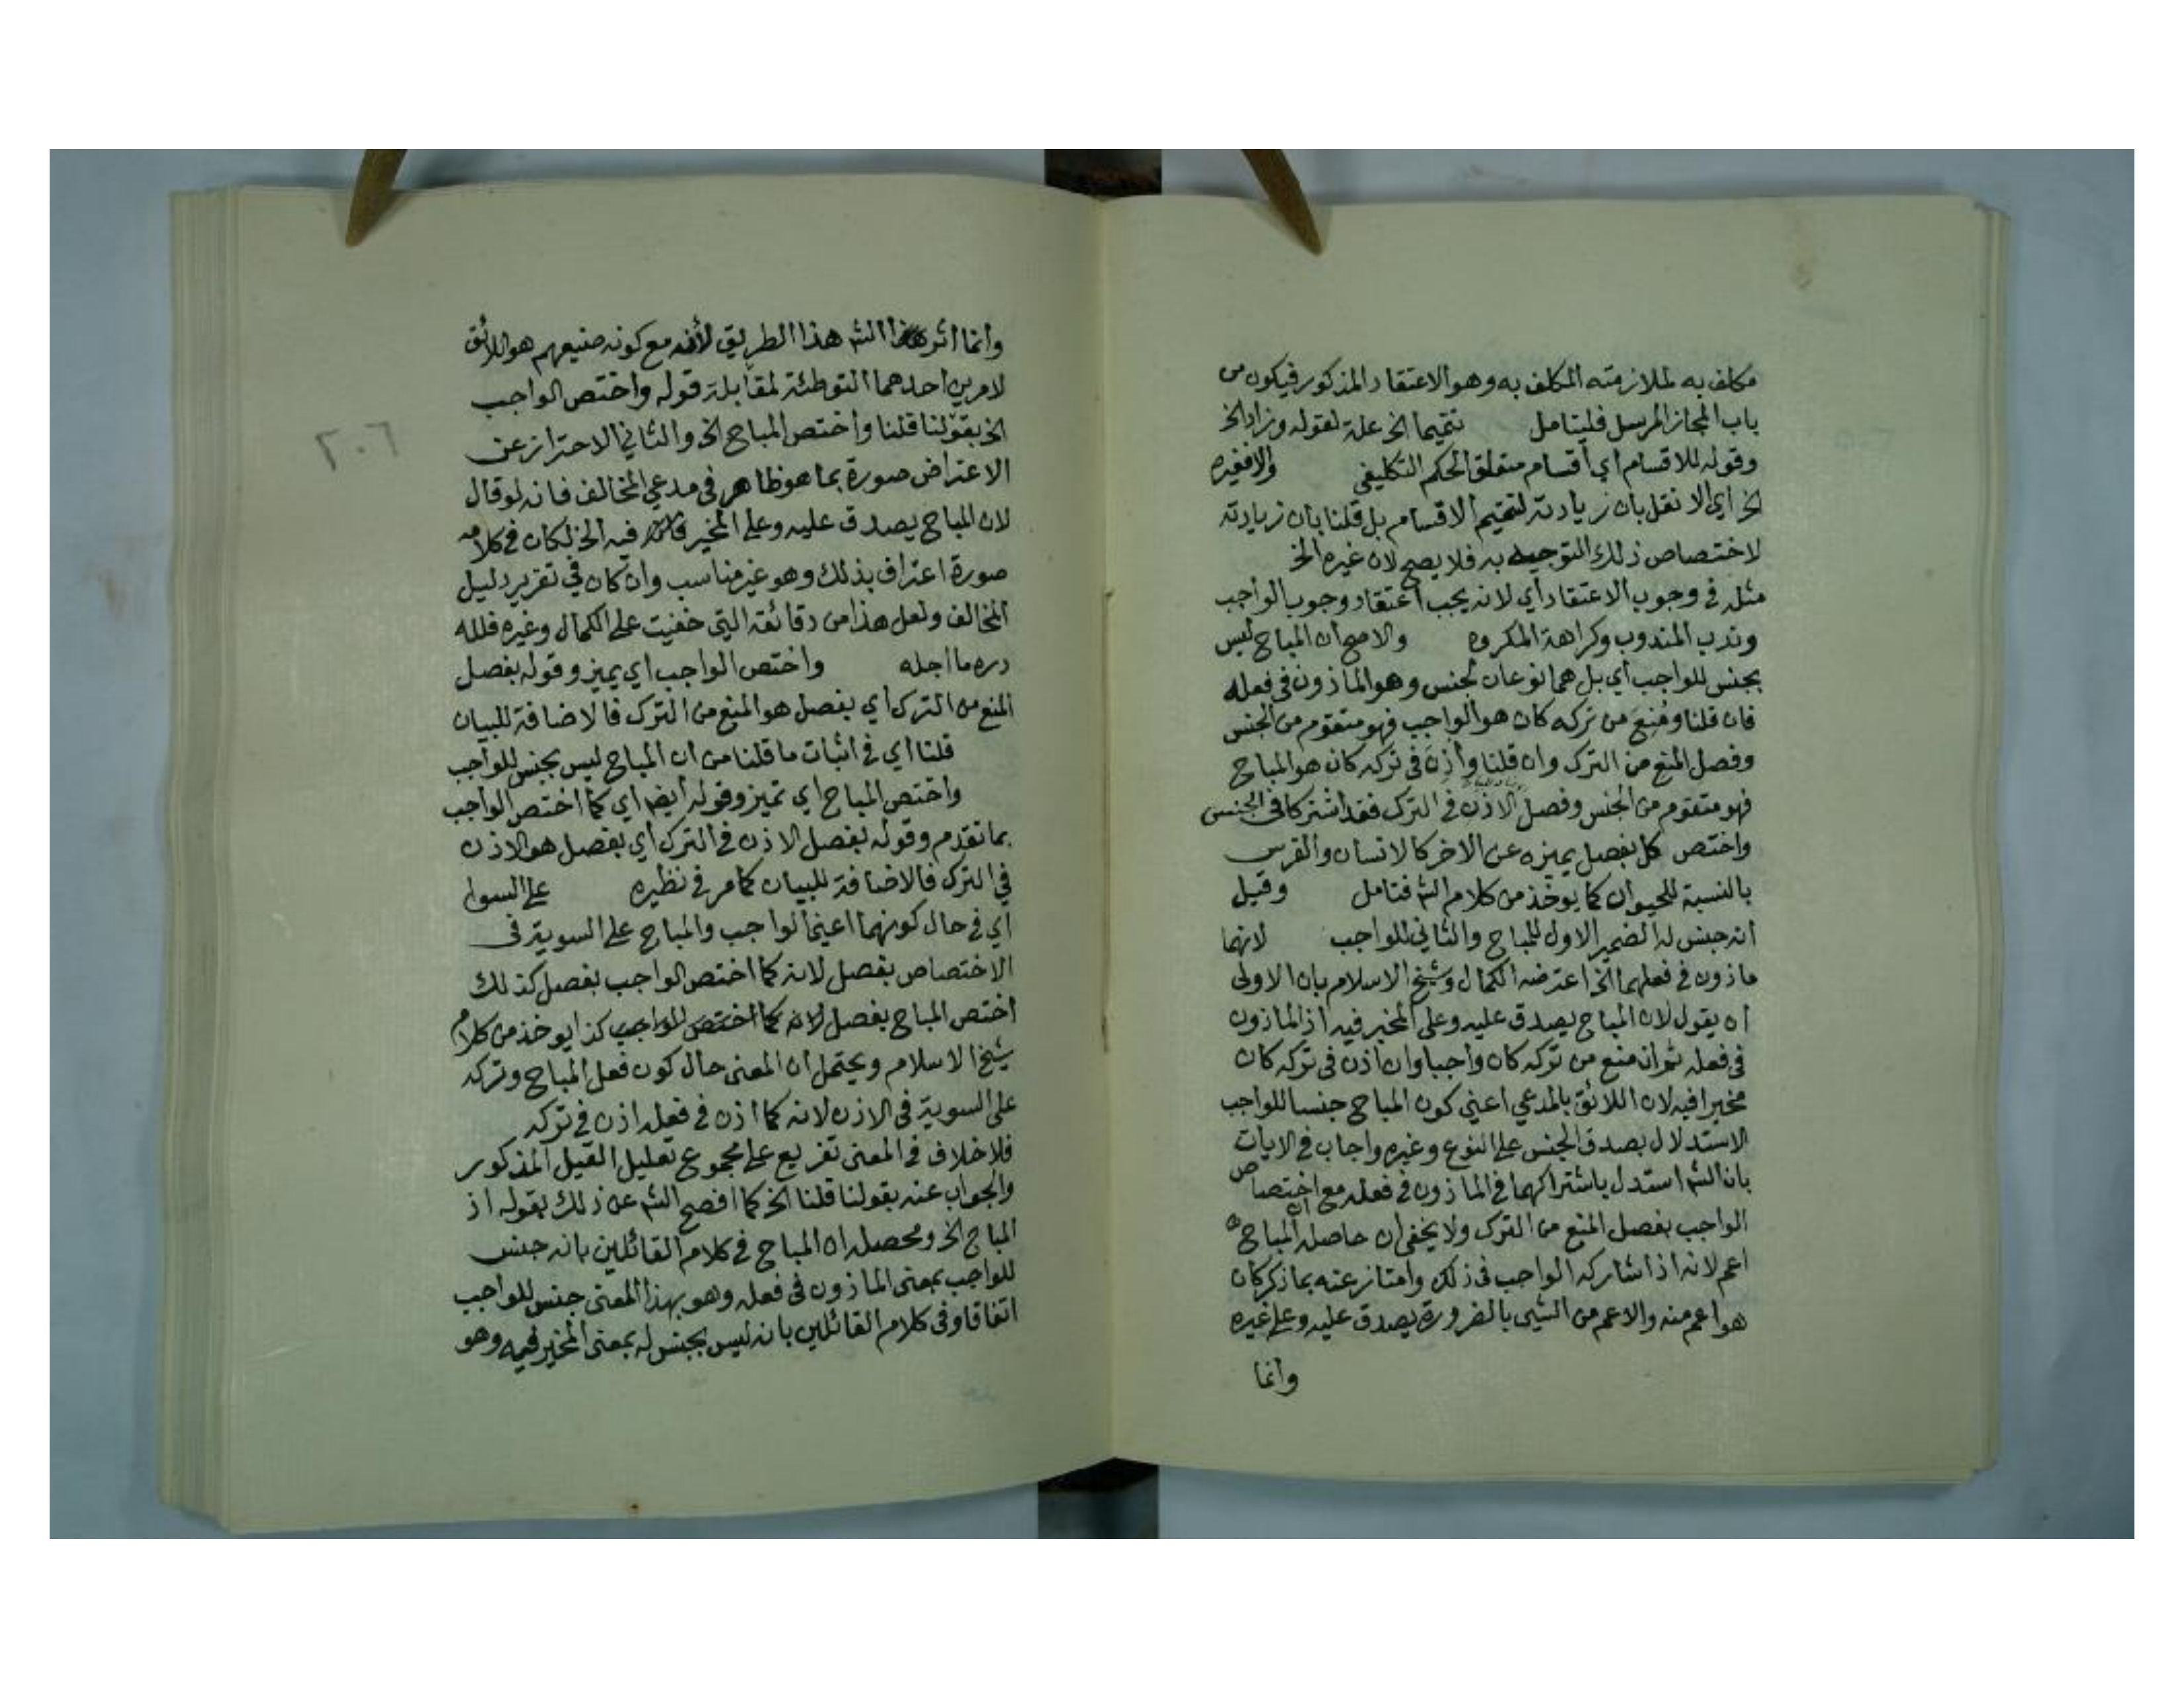 مكلف به لملازمته المكلف به وهو الاعتقاد المذكور فيكون من
باب المجاز المرسل فليتامل تتميما الخ علة لقوله وزاد الخ
وقوله للاقسام اي اقسام متعلق الحكم التكليفي والا فغيره
الخ اي الا نقل بان زيادته لتتميم الاقسام بل قلنا بان زيادته
لاختصاص ذلك التوجيه به فلا يصح لان غيره الخ
مثله في وجوب الاعتقاد اي لانه يجب اعتقاد وجوب الواجب
وندب المندوب وكراهة المكروه والاصح ان المباح ليس
بجنس للواجب اي بل هما نوعان لجنس وهو الماذون في فعله
فان قلنا ومُنِعَ من تركه كان هو الواجب فهو متقوم من الجنس
وفصل المنع من الترك وان قلنا وأذِنَ في تركه كان هو المباح
فهو متقوم من الجنس وفصل الاذن في الترك فقد اشتركا في الجنس
واختص كل بفصل يميزه عن الاخر كالانسان والفرس
بالنسبة للحيوان كما يوخذ من كلام الش فتامل وقيل
انه جنس له الضمير الاول للمباح والثاني للواجب لانهما
ماذون في فعلهما الخ اعترضه الكمال وشيخ الاسلام بان الاولى
ان يقول لان المباح يصدق عليه وعلى المخير فيه اذ الماذون
في فعله ثم انه منع من تركه كان واجبا وان اذن في تركه كان
مخيرا فيه لان اللائق بالمدعي اعني كون المباح جنسا للواجب
الاستدلال بصدق الجنس على النوع وغيره واجاب في الايات
بان الش استدل باشتراكهما في الماذون في فعله مع اختصاص
الواجب بفصل المنع من الترك ولا يخفى ان حاصله ان المباح
اعم لانه اذا شاركه الواجب في ذلك وامتاز عنه بما ذكر كان
هو اعم منه والاعم من الشيى بالضرورة يصدق عليه وعلى غيره
وانما
وانما اثر الش هذا الطريق لأنه مع كونه صنيعهم هو اللائق
لامرين احدهما التوطئة لمقابلة قوله واختص الواجب
الخ بقولنا قلنا واختص المباح الخ والثاني الاحتراز عن
الاعتراض صورة بما هو ظاهر في مدعي المخالف فانه لو قال
لان المباح يصدق عليه وعلى المخير فيه الخ لكان في كلامه
صورة اعتراف بذلك وهو غير مناسب وان كان في تقرير دليل
المخالف ولعل هذا من دقائقه التي خفيت على الكمال وغيره فلله
دره ما اجله واختص الواجب اي يميز وقوله بفصل
المنع من الترك اي بفصل هو المنع من الترك فالاضافة للبيان
قلنا اي في اثبات ما قلنا من ان المباح ليس بجنس للواجب
واختص المباح اي تميز وقوله ايضا اي كما اختص الواجب
بما تقدم وقوله بفصل الاذن في الترك اي بفصل هو الاذن
في الترك فالاضافة للبيان كما مر في نظيره على السوا
اي في حال كونهما اعني الواجب والمباح على السوية في
الاختصاص بفصل لانه كما اختص الواجب بفصل كذلك
اختص المباح بفصل لانه كما اختص الواجب كذا يوخذ من كلام
شيخ الاسلام ويحتمل ان المعنى حال كون فعل المباح وتركه
على السوية في الاذن لانه كما اذن في فعله اذن في تركه
فلا خلاف في المعنى تفريع على مجموع تعليل القيل المذكور
والجواب عنه بقولنا قلنا الخ كما افصح الش عن ذلك بقوله اذ
المباح الخ ومحصله ان المباح في كلام القائلين بانه جنس
للواجب بمعنى الماذون في فعله وهو بهذا المعنى جنس للواجب
اتفاقا وفى كلام القائلين بانه ليس بجنس له بمعنى المخير فيه وهو
٢٠٦